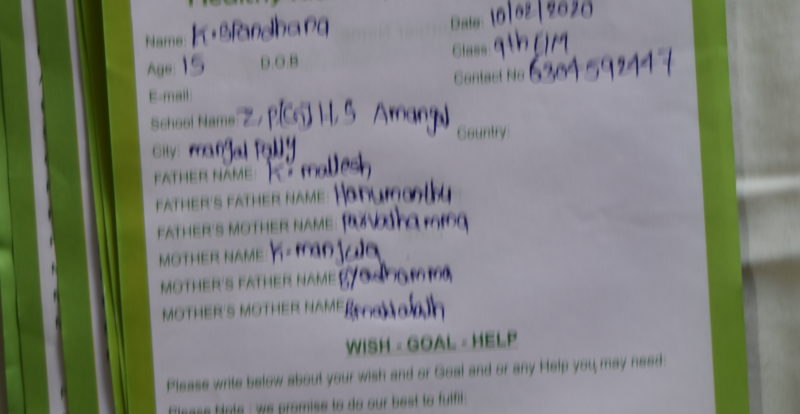 Date: 10/02/2020
Name: K. Spandhana
Class: 9th E/M
Age: 15 D.O.B
Contact No 6304592447
E-mail:
School Name: Z.P[G] H.S Amangal
Country:
City: mangal Pally
FATHER NAME: K. mallesh
FATHER'S FATHER NAME: Hanumanthu
FATHER'S MOTHER NAME: Parvathamma
MOTHER NAME: K. manjula
MOTHER'S FATHER NAME
MOTHER'S MOTHER NAME
WISH - GOAL - HELP
Please write below about your wish and or Goal and or any Help you may need:
Please Note : we promise to do our best to fulfil: